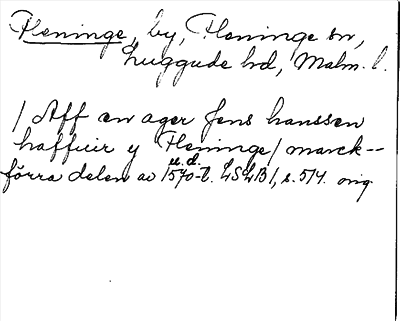 Fleninge, by, Fleninge sn,
Luggude hd, Malm. l.
/ Aff en ager Jens hanssen
haffuer y Fleninge / marck--
u.d.
förra delen av 1570-t. LSLB 1, s. 514. orig.